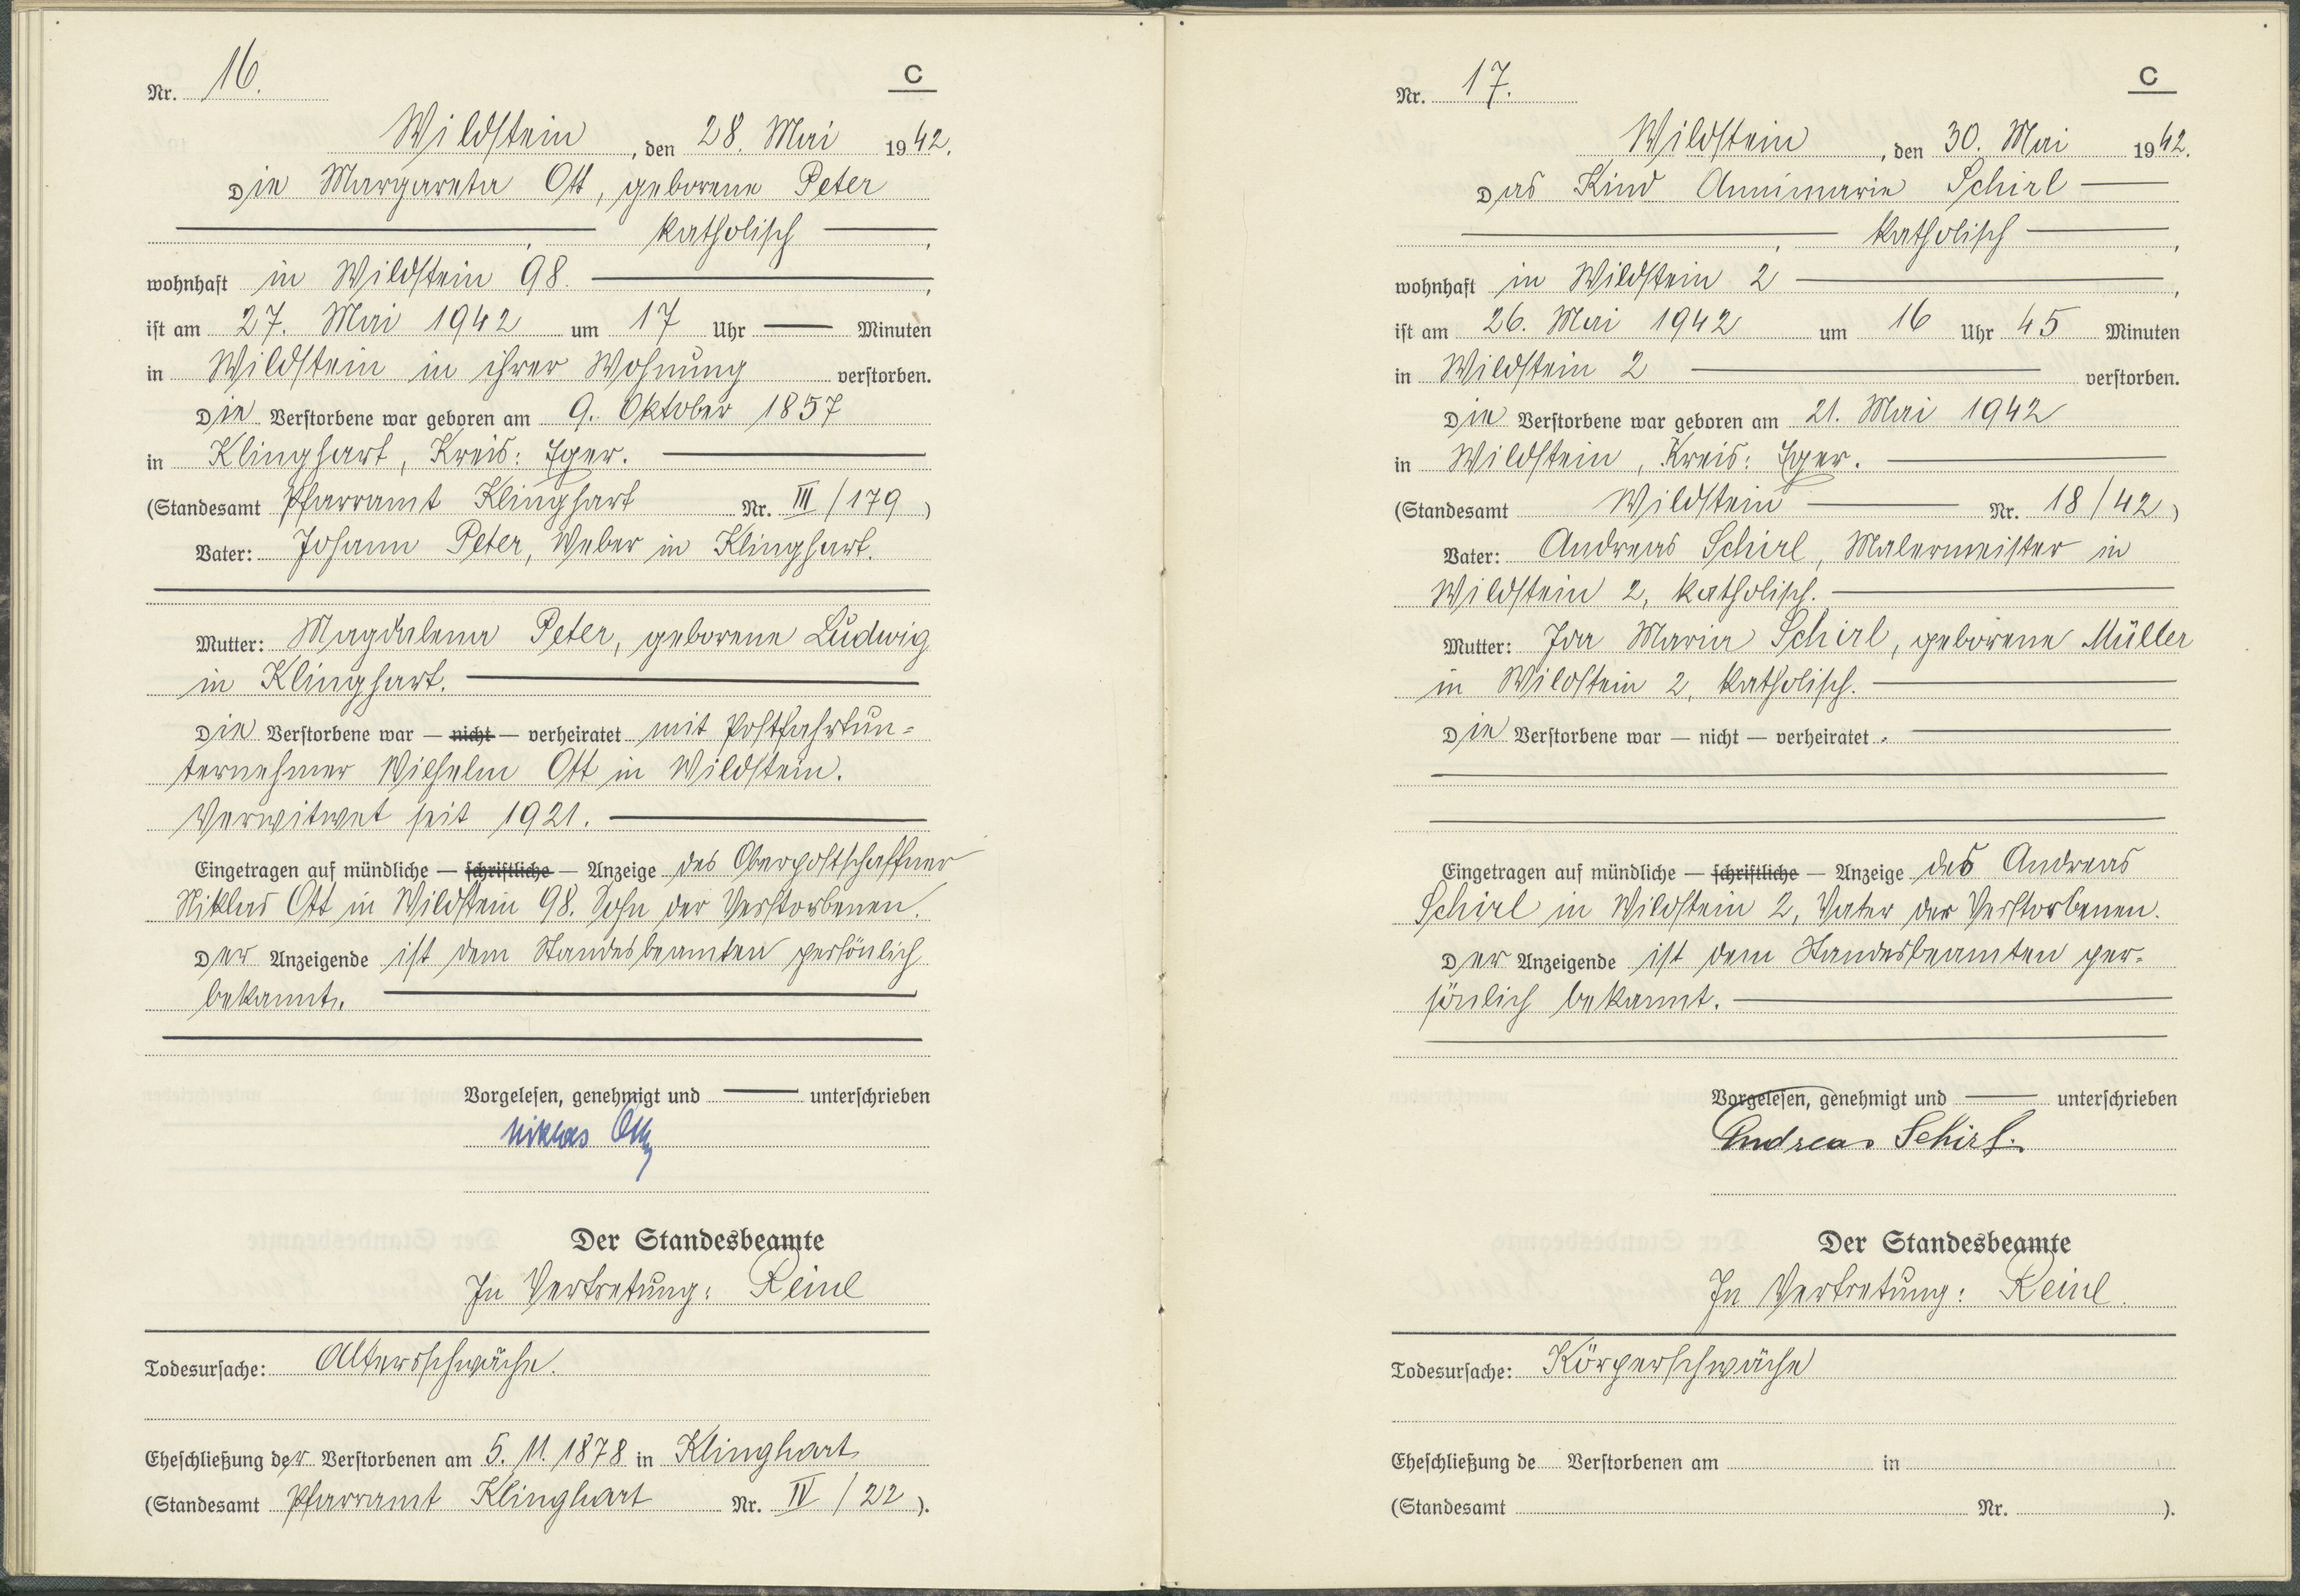 Nr. 16.
C
Wildstein, den 28. Mai 1942.
Die Margareta Ott, geborene Peter
katholisch,
wohnhaft in Wildstein 98.
ist am 27. Mai 1942 um 17 Uhr — Minuten
in Wildstein in ihrer Wohnung verstorben.
Die Verstorbene war geboren am 9. Oktober 1857
in Klinghart, Kreis: Eger.
(Standesamt Pfarramt Klinghart Nr. III/179)
Vater: Johann Peter, Weber in Klinghart.
Mutter: Magdalena Peter, geborene Ludwig
in Klinghart.
Die Verstorbene war — nicht — verheiratet mit Postfahrtun=
ternehmer Wilhelm Ott in Wildstein.
Verwitwet seit 1921.
Eingetragen auf mündliche — schriftliche — Anzeige des Oberpostschaffner
Niklas Ott in Wildstein 98. Sohn der Verstorbenen.
Der Anzeigende ist dem Standesbeamten persönlich
bekannt.
Vorgelesen, genehmigt und — unterschrieben
Niklas Ott
Der Standesbeamte
In Vertretung: Reinl
Todesursache: Altersschwäche.
Eheschließung der Verstorbenen am 5. 11. 1878 in Klinghart
(Standesamt Pfarramt Klinghart Nr. IV/22).
Nr. 17.
C
Wildstein, den 30. Mai 1942.
Das Kind Annimarie Schirl —
katholisch,
wohnhaft in Wildstein 2
ist am 26. Mai 1942 um 16 Uhr 45 Minuten
in Wildstein 2 verstorben.
Die Verstorbene war geboren am 21. Mai 1942
in Wildstein, Kreis: Eger.
(Standesamt Wildstein — Nr. 18/42)
Vater: Andreas Schirl, Malermeister in
Wildstein 2, katholisch.
Mutter: Ida Maria Schirl, geborene Müller
in Wildstein 2, katholisch.
Die Verstorbene war — nicht — verheiratet.
Eingetragen auf mündliche — schriftliche — Anzeige des Andreas
Schirl in Wildstein 2, Vater der Verstorbenen.
Der Anzeigende ist dem Standesbeamten per=
sönlich bekannt.
Vorgelesen, genehmigt und — unterschrieben
Andreas Schirl.
Der Standesbeamte
In Vertretung: Reinl.
Todesursache: Körperschwäche
Eheschließung de Verstorbenen am in
(Standesamt Nr. ).